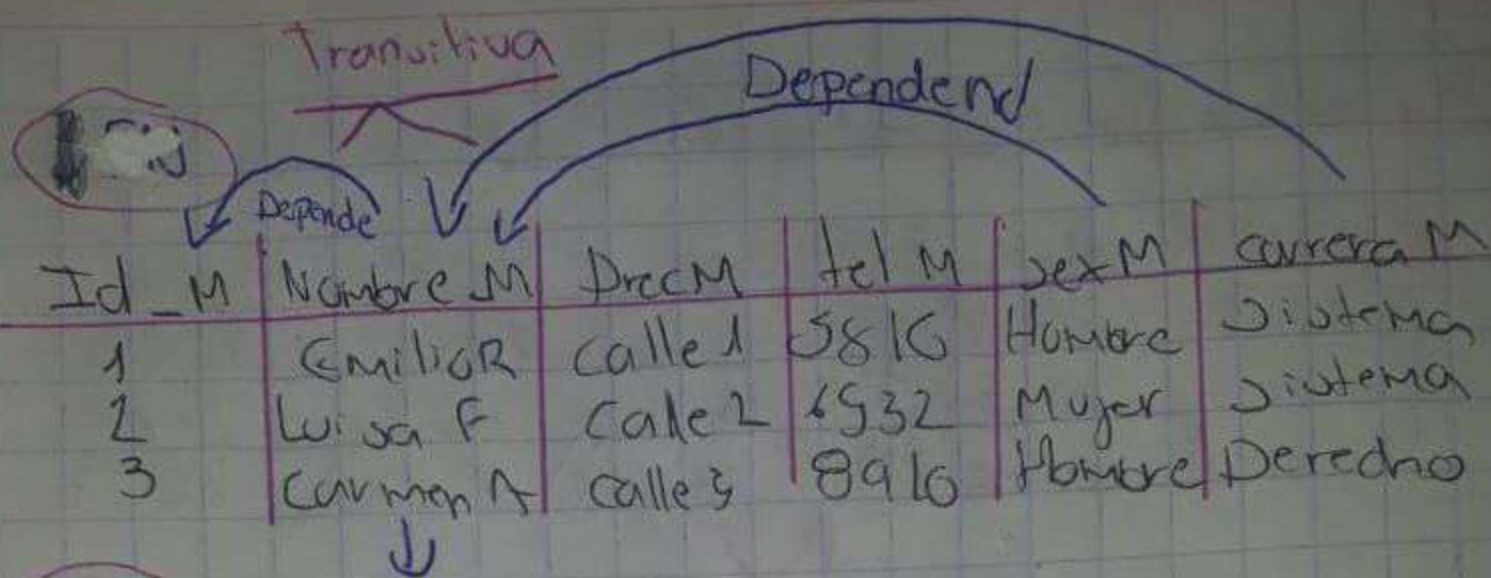 Transitiva
Dependend
Depende
Id_M Nombre M DrecM tel M sexM carrera M
1 Emilio R calle 1 5816 Hombre Sistema
2 Luisa F Calle 2 6932 Mujer Sistema
3 Carmen A calle 3 8916 Hombre Derecho